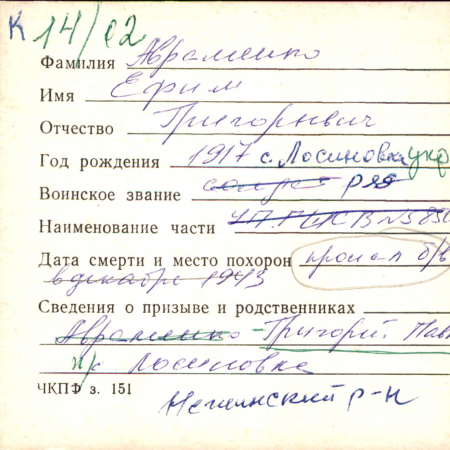 К 14/02
Фамилия Авраменко
Имя Ефим
Отчество Григорьевич
Год рождения 1917 с. Лосиновка укр
Воинское звание ряд
Наименование части
Дата смерти и место похорон пропал б/в
в декабре 1943
Сведения о призыве и родственниках
Авраменко - Григорий Пав
п/с Лосиновка
ЧКПФ з. 151
Нежинский р-н